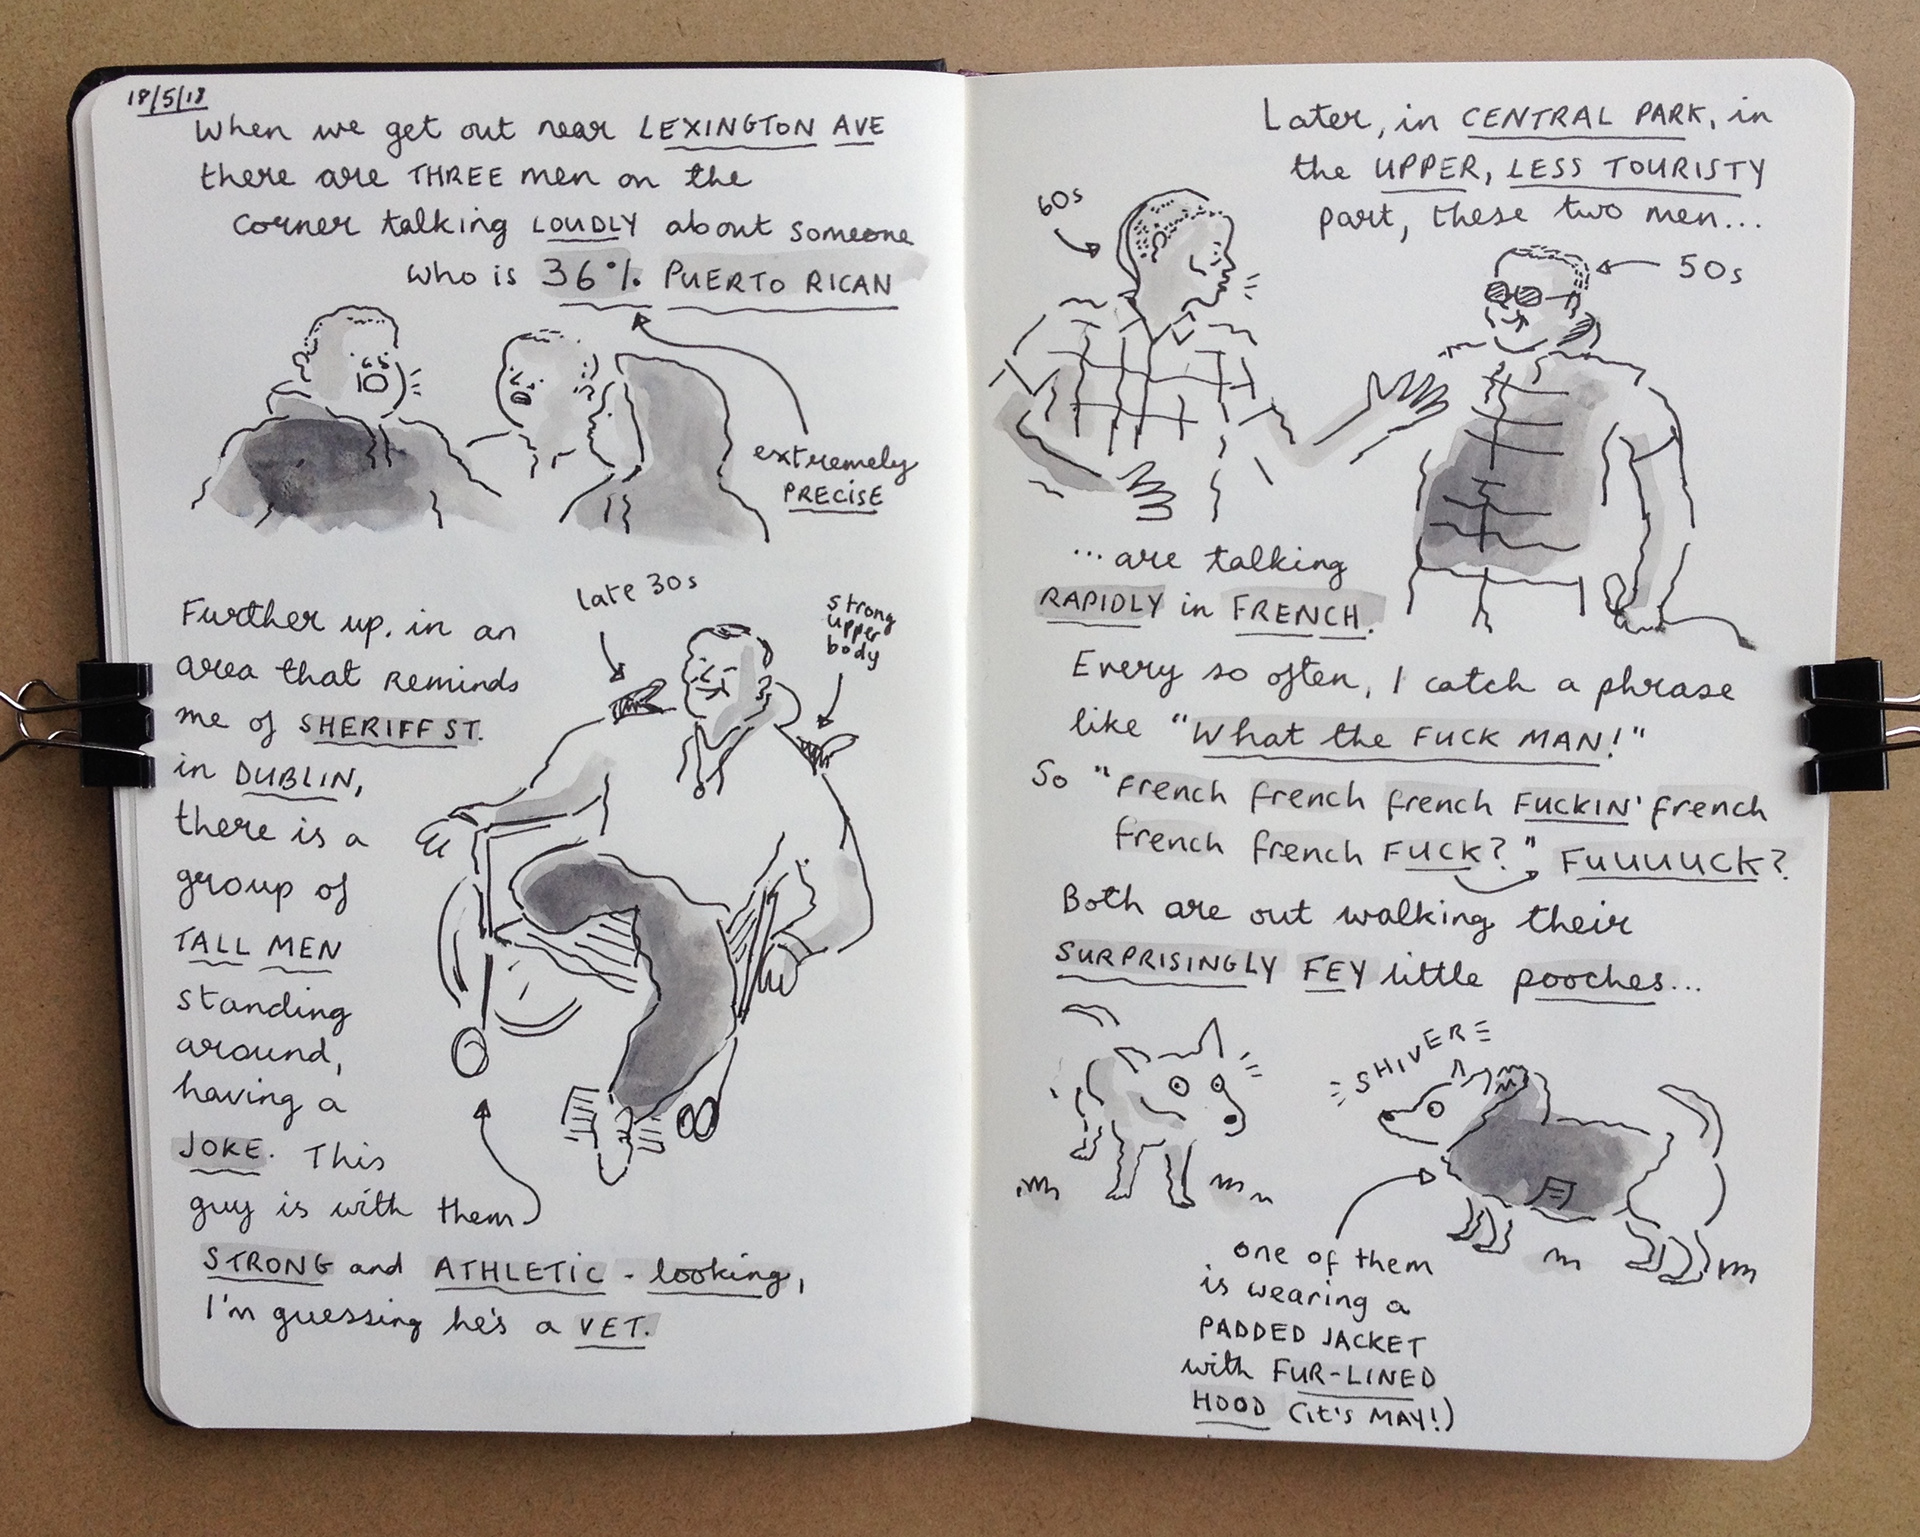 18/5/18
When we get out near LEXINGTON AVE
there are THREE men on the
corner talking LOUDLY about someone
who is 36% PUERTO RICAN
extremely
PRECISE
Further up, in an
area that reminds
me of SHERIFF ST.
in DUBLIN,
there is a
group of
TALL MEN
standing
around,
having a
JOKE. This
guy is with them
STRONG and ATHLETIC-looking,
I'm guessing he's a VET.
late 30s
strong
upper
body
Later, in CENTRAL PARK, in
the UPPER, LESS TOURISTY
part, these two men...
60s
50s
...are talking
RAPIDLY in FRENCH.
Every so often, I catch a phrase
like "What the FUCK MAN!"
So "french french french FUCKIN' french
french french FUCK?" FUUUUCK?
Both are out walking their
SURPRISINGLY FEY little pooches...
SHIVER
one of them
is wearing a
PADDED JACKET
with FUR-LINED
HOOD (it's MAY!)